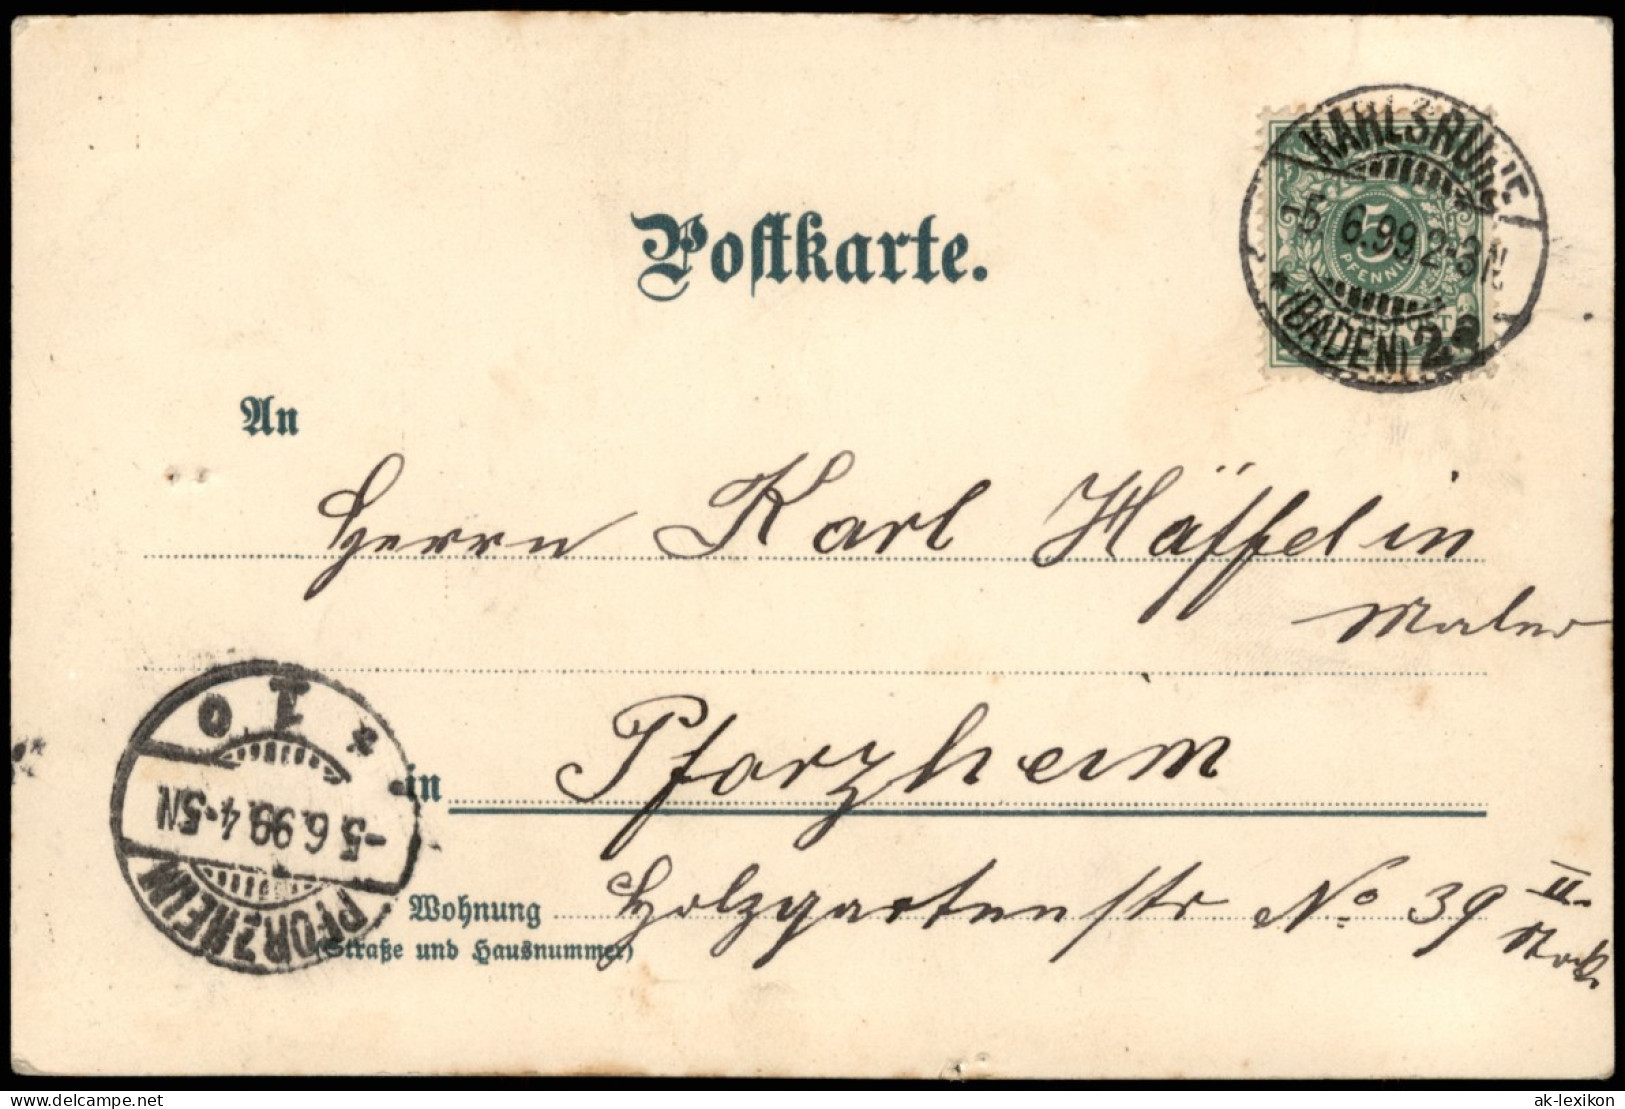 Postkarte.
KARLSRUHE
-5. 6.99. 2-3N
* (BADEN) 2
5
PFENNIG
An
Herrn Karl Häffelin
Maler
in Pforzheim
Wohnung Holzgartenstr No 39 II.
(Straße und Hausnummer)
Stock
* 1 o
-5. 6.99. 4-5N
PFORZHEIM
www.delcampe.net
ak-lexikon